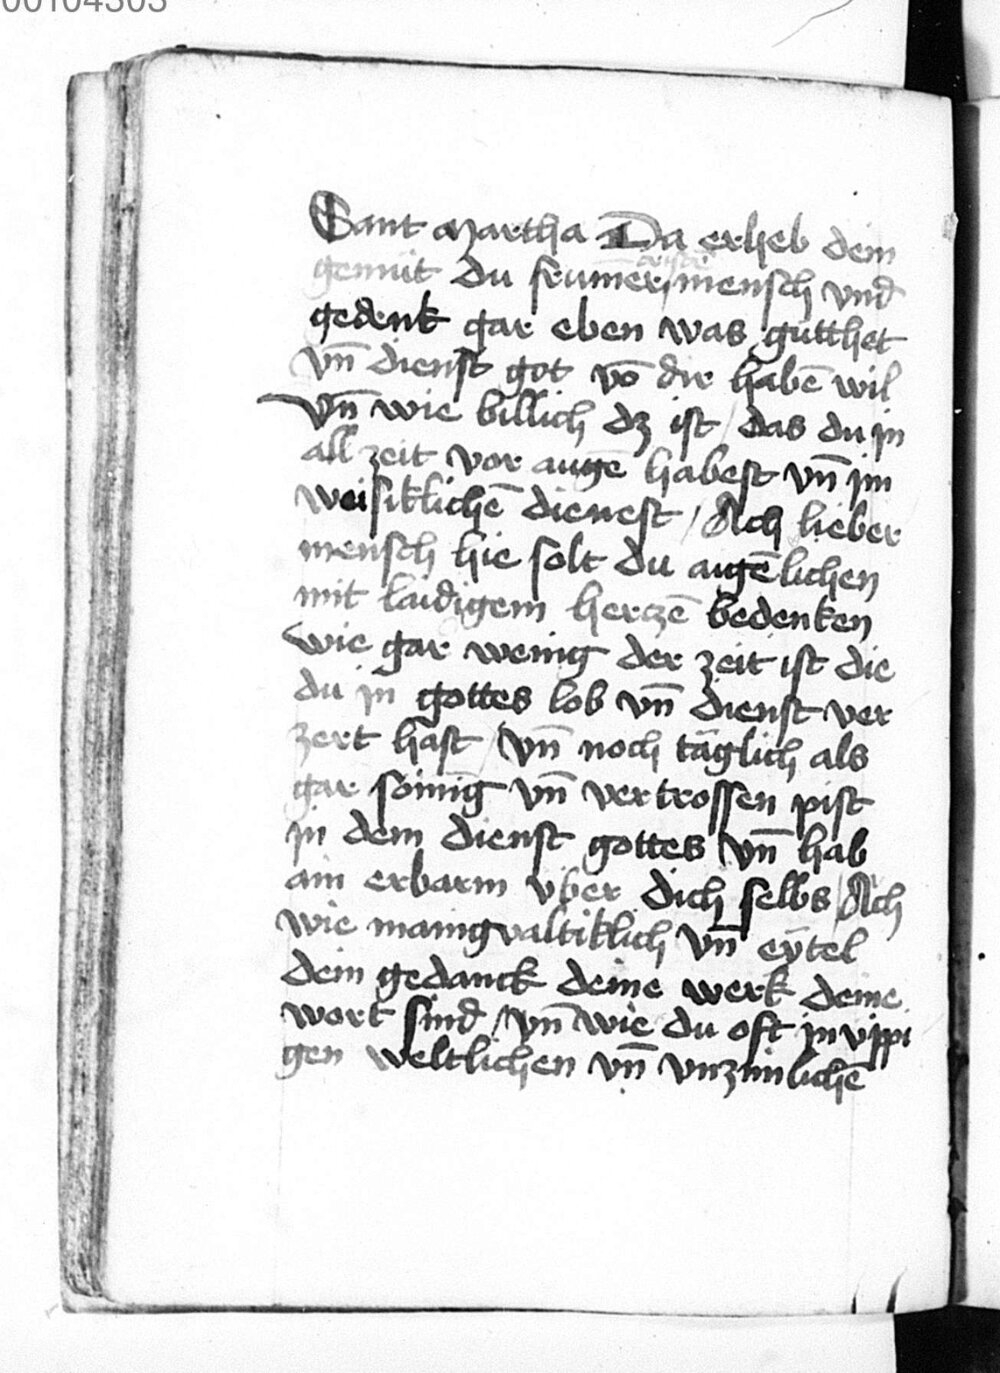 00104303
Sant Martha Da erheb dein
gemüt du frumer mensch vnd
gedenk gar eben was gutthet
vn̄ dienst got vō dir habē wil
Vn̄ wie billich dz ist / das du in
all zeit vor augē habest vn̄ im
dienest / Ach lieber
mensch hie solt du augēlichen
mit laidigem herczē bedenken
wie gar wenig der zeit ist die
du in gottes lob vn̄ dienst ver
zert hast / vn̄ noch täglich als
gar sömig vn̄ vertrossen pist
in dem dienst gottes / vn̄ hab
ain erbarm über dich selbs / Ach
wie manigvaltiklich vn̄ eytel
dein gedanck deine werk deine
wort sind / vn̄ wie du oft in vppi
gen weltlichen vn̄ vnzimlichē